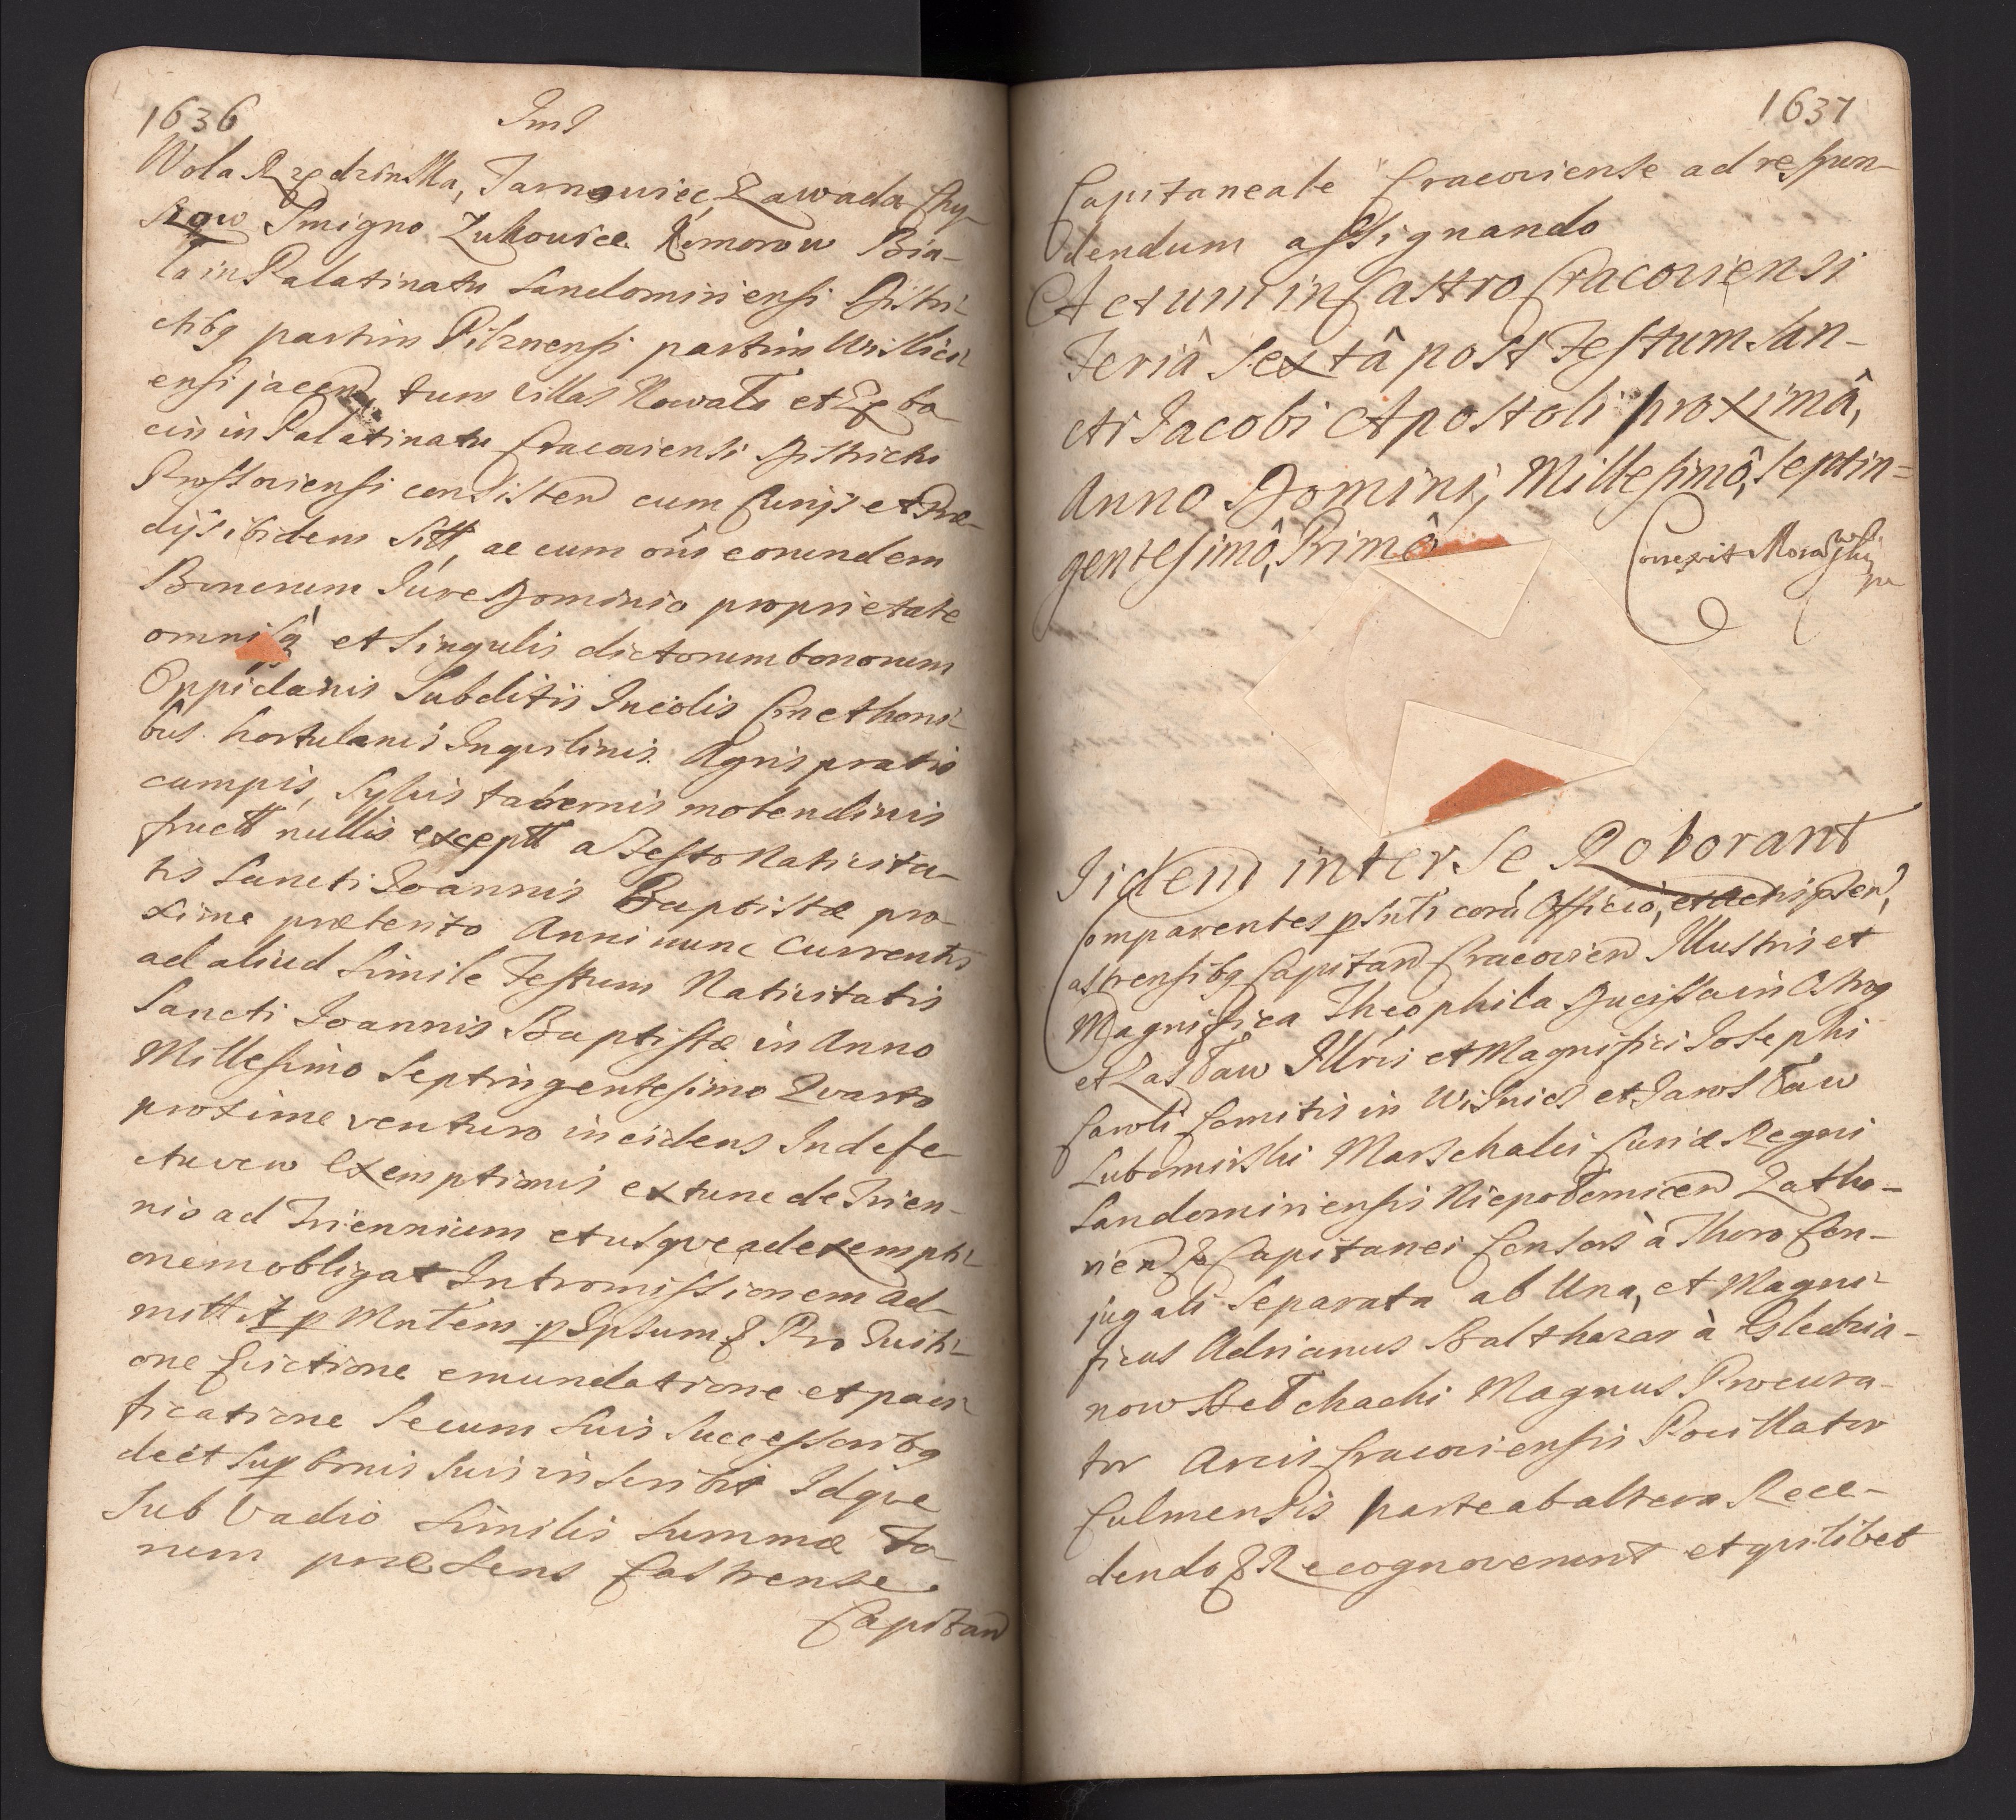 1636
Wola Rzędzinska, Tarnowiec, Zawada Chy-
szow Smigno Zukowice Komorow Bia-
ła in Palatinatu Sandomiriensi Distri-
ctibq partim Pilznensi partim Wislici-
ensi jacen, tum villas Nowala et
cin in Palatinatu Cracoviensi Districtu
Proszoviensi consisten cum Curijs et Præ-
dijs ibidem sitt, ac cum oñi eorundem
Bonorum Jure Dominio proprietate
omnibq et singulis dictorum bonorum
Oppidanis Subditis Incolis Cmethoni-
bus hortulanis Inquilinis Agris pratis
campis, Sylvis tabernis molendinis
fructt nullis exceptt a Festo Nativita-
tis Sancti Joannis Baptistæ pro-
xime præterito Anni nunc Currentis
ad aliud simile Festum Nativitatis
Sancti Joannis Baptistæ in Anno
Millesimo Septringentesimo Qvarto
proxime venturo incidens Indefe-
ctu vero Exemptionis extunc de Trien-
nio ad Triennium et usqve ad exempti-
onem obligat Intromissionem Ad-
mitt p p Ipsum & Pro
one Evictione emundatione et paci-
ficatione Secum Suis Successoribq
deet Sup bonis Suis inscribit Idqve
Sub Vadio Similis Summæ Fo-
rum præsens Castrense
Capitan
1637
Capitaneale Cracoviense ad respon-
dendum assignando
Actum in Castro Cracoviensi
Feriâ Sextâ post Festum San-
cti Jacobi Apostoli proximâ,
Anno Domini, Millesimô, Septin=
gentesimô, Primô
Correxit
Iidem inter Se Roborant
Comparentes psntr corã Officio, et Actis psen,
Castrensibq Capitan Cracovien Illustris et
Magnifica Theophila Ducissa in Ostrog
et Zasław Illris et Magnifici Josephi
Caroli Comitis in Wisnicz et Jarosław
Lubomirski Marschalci Curiæ Regni
Sandomiriensis Niepołomicen Zatho-
rien & Capitanei Consors à Thoro Con-
jugali Separata ab Una, et Magni-
ficus Adrianus Balthazar à Gledzia-
now Bełchacki Magnus Procura-
tor Arcis Cracoviensis Pocillator
Culmensis parte ab altera Rece-
dendo & Recognoverunt et qvilibet